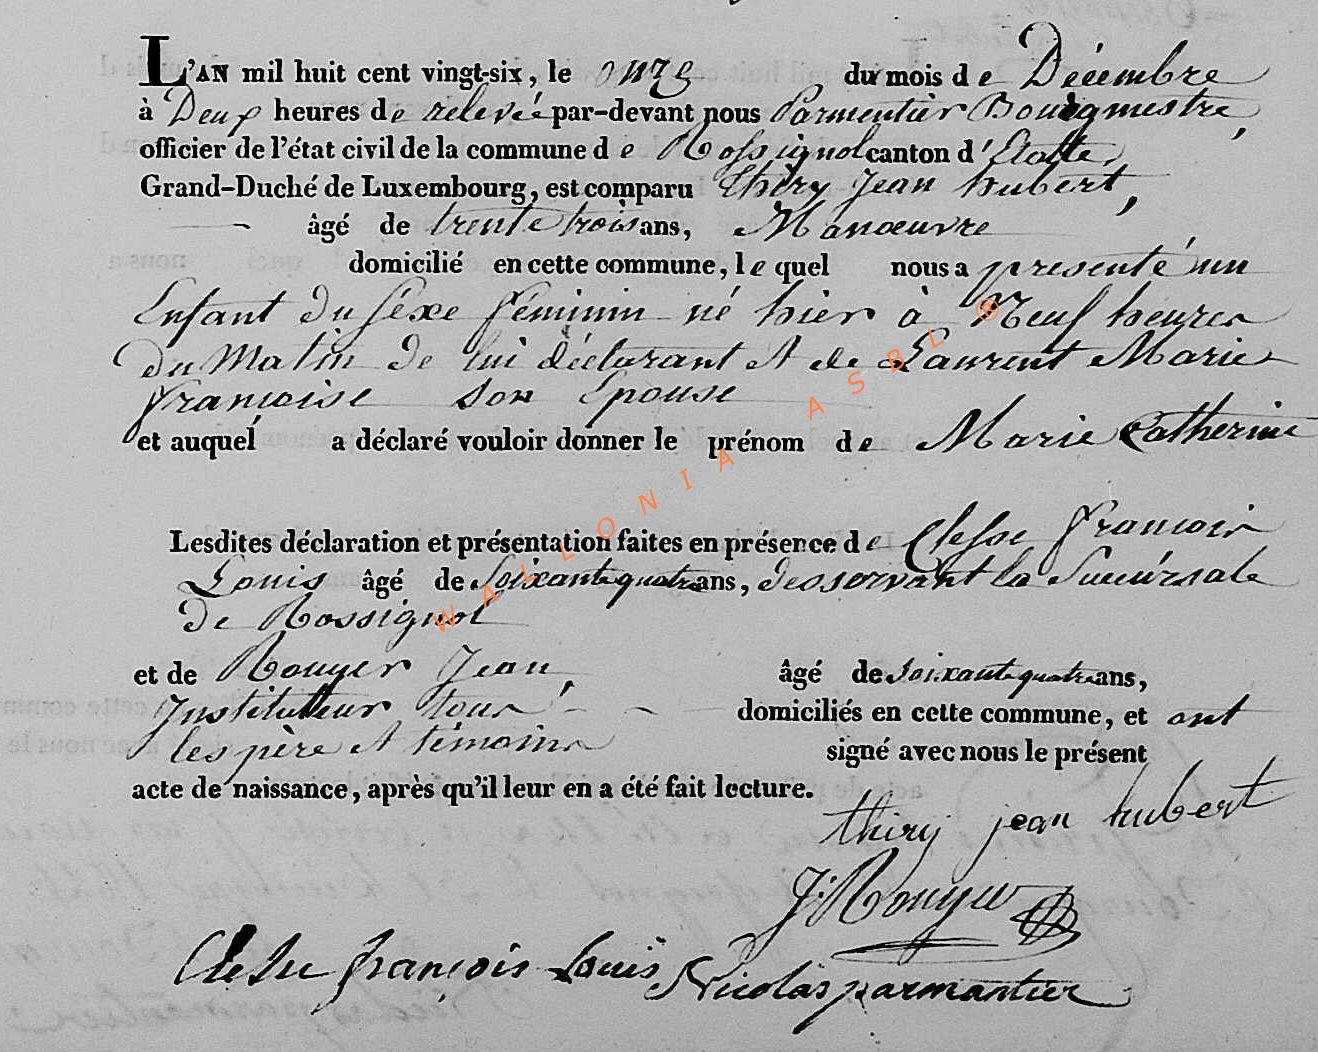 L'AN mil huit cent vingt-six, le onze du mois de Décembre
à Deux heures de relevée par-devant nous Parmentier Bourgmestre,
officier de l'état civil de la commune de Rossignol canton d'Etalle,
Grand-Duché de Luxembourg, est comparu thiry Jean hubert,
âgé de trente trois ans, Manœuvre
domicilié en cette commune, lequel nous a presenté un
Enfant du séxe féminin né hier à Neuf heures
du Matin de lui déclarant et de Laurent Marie
françoise son Epouse
et auquel a déclaré vouloir donner le prénom de Marie Catherine
Lesdites déclaration et présentation faites en présence de Clesse François
Louis âgé de Soixante quatre ans, desservant la Succursale
de Rossignol
et de Rouyer Jean, âgé de soixante quatre ans,
Instituteur tous domiciliés en cette commune, et ont
les père et témoins signé avec nous le présent
acte de naissance, après qu'il leur en a été fait lecture.
thiry jean hubert
J: Rouyer
Clesse françois Louis Nicolas parmantier
WALLONIA ASBL ®